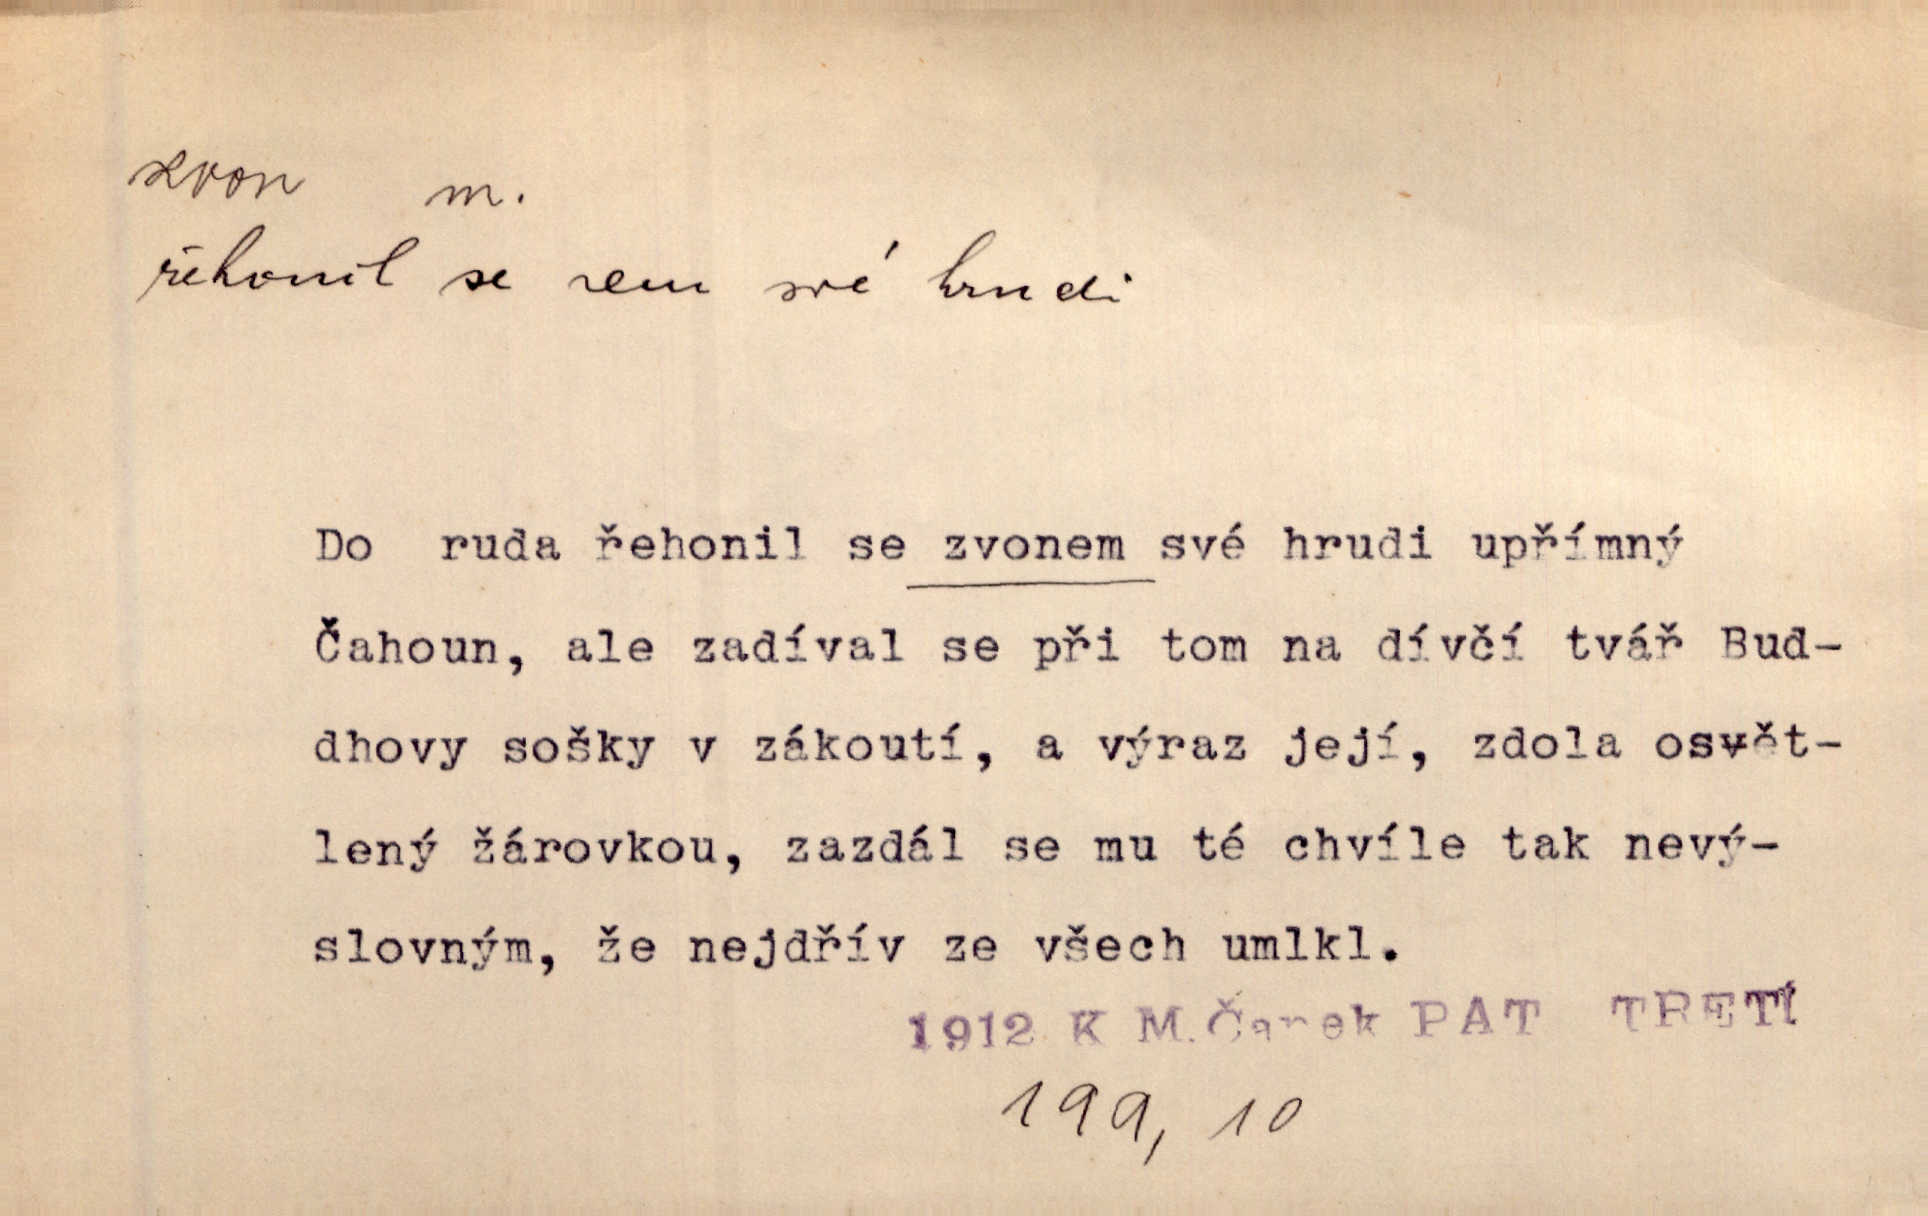 zvon m.
řehonil se zem své hrudi
Do ruda řehonil se zvonem své hrudi upřímný
Čahoun, ale zadíval se při tom na dívčí tvář Bud-
dhovy sošky v zákoutí, a výraz její, zdola osvět-
lený žárovkou, zazdál se mu té chvíle tak nevý-
slovným, že nejdřív ze všech umlkl.
1912 K M. Čapek PAT TRETÍ
199, 10